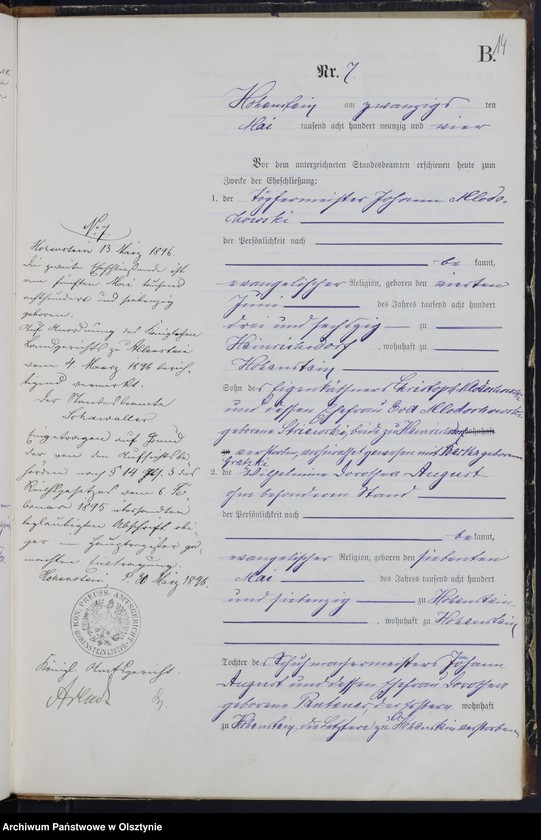 B.
14
Nr. 7
Hohenstein am zwanzigs ten
Mai tausend acht hundert neunzig und vier
Vor dem unterzeichneten Standesbeamten erschienen heute zum
Zwecke der Eheschließung:
1. der Töpfermeister Johann Mlodo-
chowski
der Persönlichkeit nach
be kannt,
evangelischer Religion, geboren den vierten
Juni des Jahres tausend acht hundert
drei und sechszig zu
Heinrichsdorf, wohnhaft zu
Hohenstein
Sohn des Eigenkäthners Christoph Mlodochowski
und dessen Ehefrau Eva Mlodochowski
geborene beide zu Heinrichsdorf wohnhaft
zu verstorben, verheirathet gewesen mit geborenen
2. die Wilhelmine Dorothea August
ohne besonderen Stand
der Persönlichkeit nach
be kannt,
evangelischer Religion, geboren den siebenten
Mai des Jahres tausend acht hundert
und siebenzig zu Hohenstein
, wohnhaft zu Hohenstein
Tochter des Schuhmachermeisters Johann
August und dessen Ehefrau Dorothea
geborene der Erstere wohnhaft
zu Hohenstein, die Letztere zu Hohenstein verstorben
N. 7.
Hohenstein 13 März 1896.
Die zweite Eheschließende ist
am fünften Mai tausend
achthundert und siebenzig
geboren.
Auf Anordnung des Königlichen
Landgerichts zu Allenstein
vom 4. März 1896 berich-
tigend vermerkt.
Der Standesbeamte
Schawaller
Eingetragen auf Grund
der von den Aufsichtsbe-
hörden nach § 14 Abs. 3 des
Reichsgesetzes vom 6. Fe-
bruar 1875 übersandten
beglaubigten Abschrift obi-
ger im Hauptregister ge-
machten Eintragung.
Hohenstein, d. 20 März 1896.
KÖN. PREUSS. AMTSGERICHT
HOHENSTEIN
Königl. Amtsgericht.
Archiwum Państwowe w Olsztynie